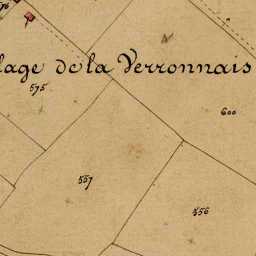 lage de la Verronnais
575
600
557
556